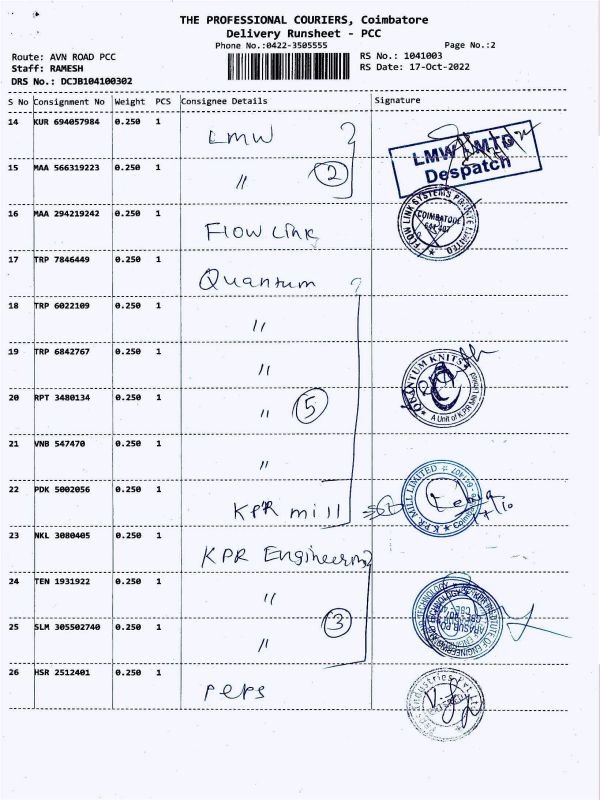 THE PROFESSIONAL COURIERS, Coimbatore
Delivery Runsheet - PCC
Phone No.:0422-3505555 Page No.:2
Route: AVN ROAD PCC RS No.: 1041003
Staff: RAMESH RS Date: 17-Oct-2022
DRS No.: DCJB104100302
S No Consignment No Weight PCS Consignee Details Signature
14 KUR 694057984 0.250 1 LMW
LMW LMTD
Despatch
15 MAA 566319223 0.250 1 〃 2
16 MAA 294219242 0.250 1 Flow Link
FLOW LINK SYSTEMS PRIVATE LIMITED
COIMBATORE
641 407
17 TRP 7846449 0.250 1 Quantum
18 TRP 6022109 0.250 1 〃
19 TRP 6842767 0.250 1 〃
QUANTUM KNITS
A Unit of KPR Mill Limited
20 RPT 3480134 0.250 1 〃 5
21 VNB 547470 0.250 1 〃
22 PDK 5002056 0.250 1 KPR mill
KPR MILL LIMITED
23 NKL 3080405 0.250 1 KPR Engineering
24 TEN 1931922 0.250 1 〃
KPR INSTITUTE OF ENGINEERING AND TECHNOLOGY
25 SLM 305502740 0.250 1 〃 3
26 HSR 2512401 0.250 1 Peps
Peps Industries Pvt. Ltd.